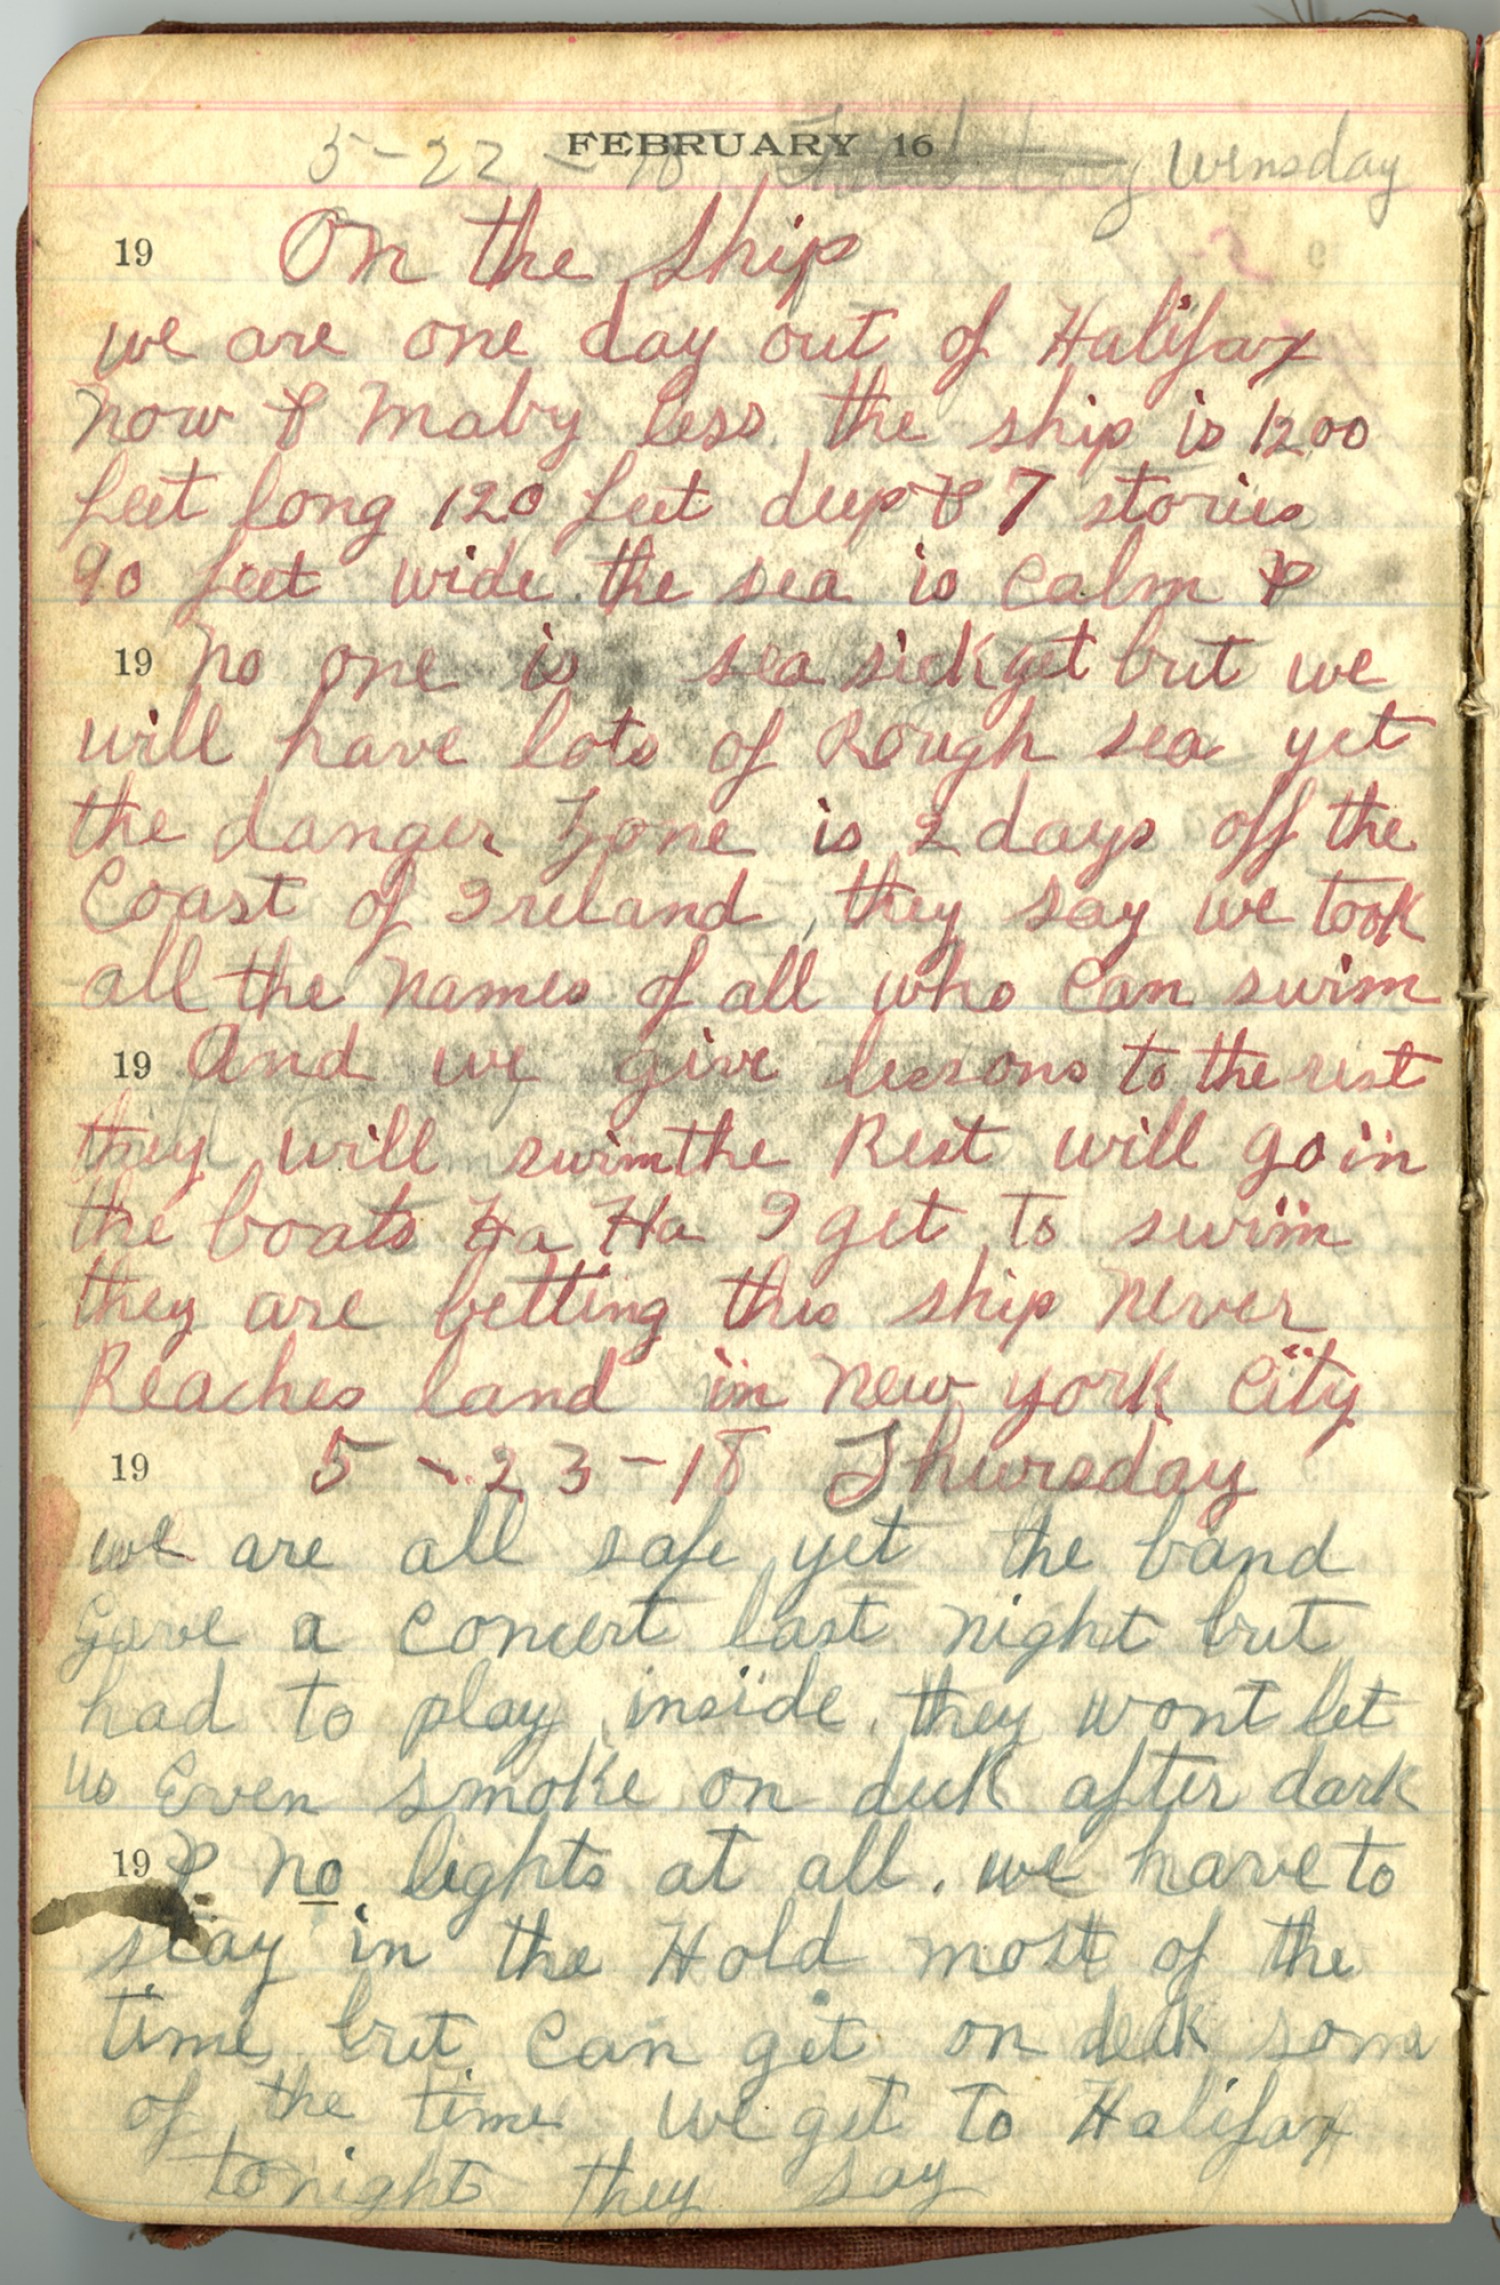 FEBRUARY 16
5-22-18 Wensday
19 On the Ship
we are one day out of Halifax
now & Maby less. the ship is 1200
feet long 120 feet deep & 7 stories
90 feet wide. the sea is calm &
19 no one is sea sick yet but we
will have lots of Rough sea yet
the danger Zone is 2 days off the
Coast of Ireland, they say we took
all the names of all who can swim
19 And we give lessons to the rest
they will swim the Rest will go in
the boats Ha Ha I get to swim
they are betting this ship never
Reaches land in New York City
19 5-23-18 Thursday
we are all safe yet the band
Gave a concert last night but
had to play inside. they wont let
us Even smoke on deck after dark
19 & no lights at all. we have to
stay in the Hold most of the
time but can get on deck some
of the time we get to Halifax
tonight they say